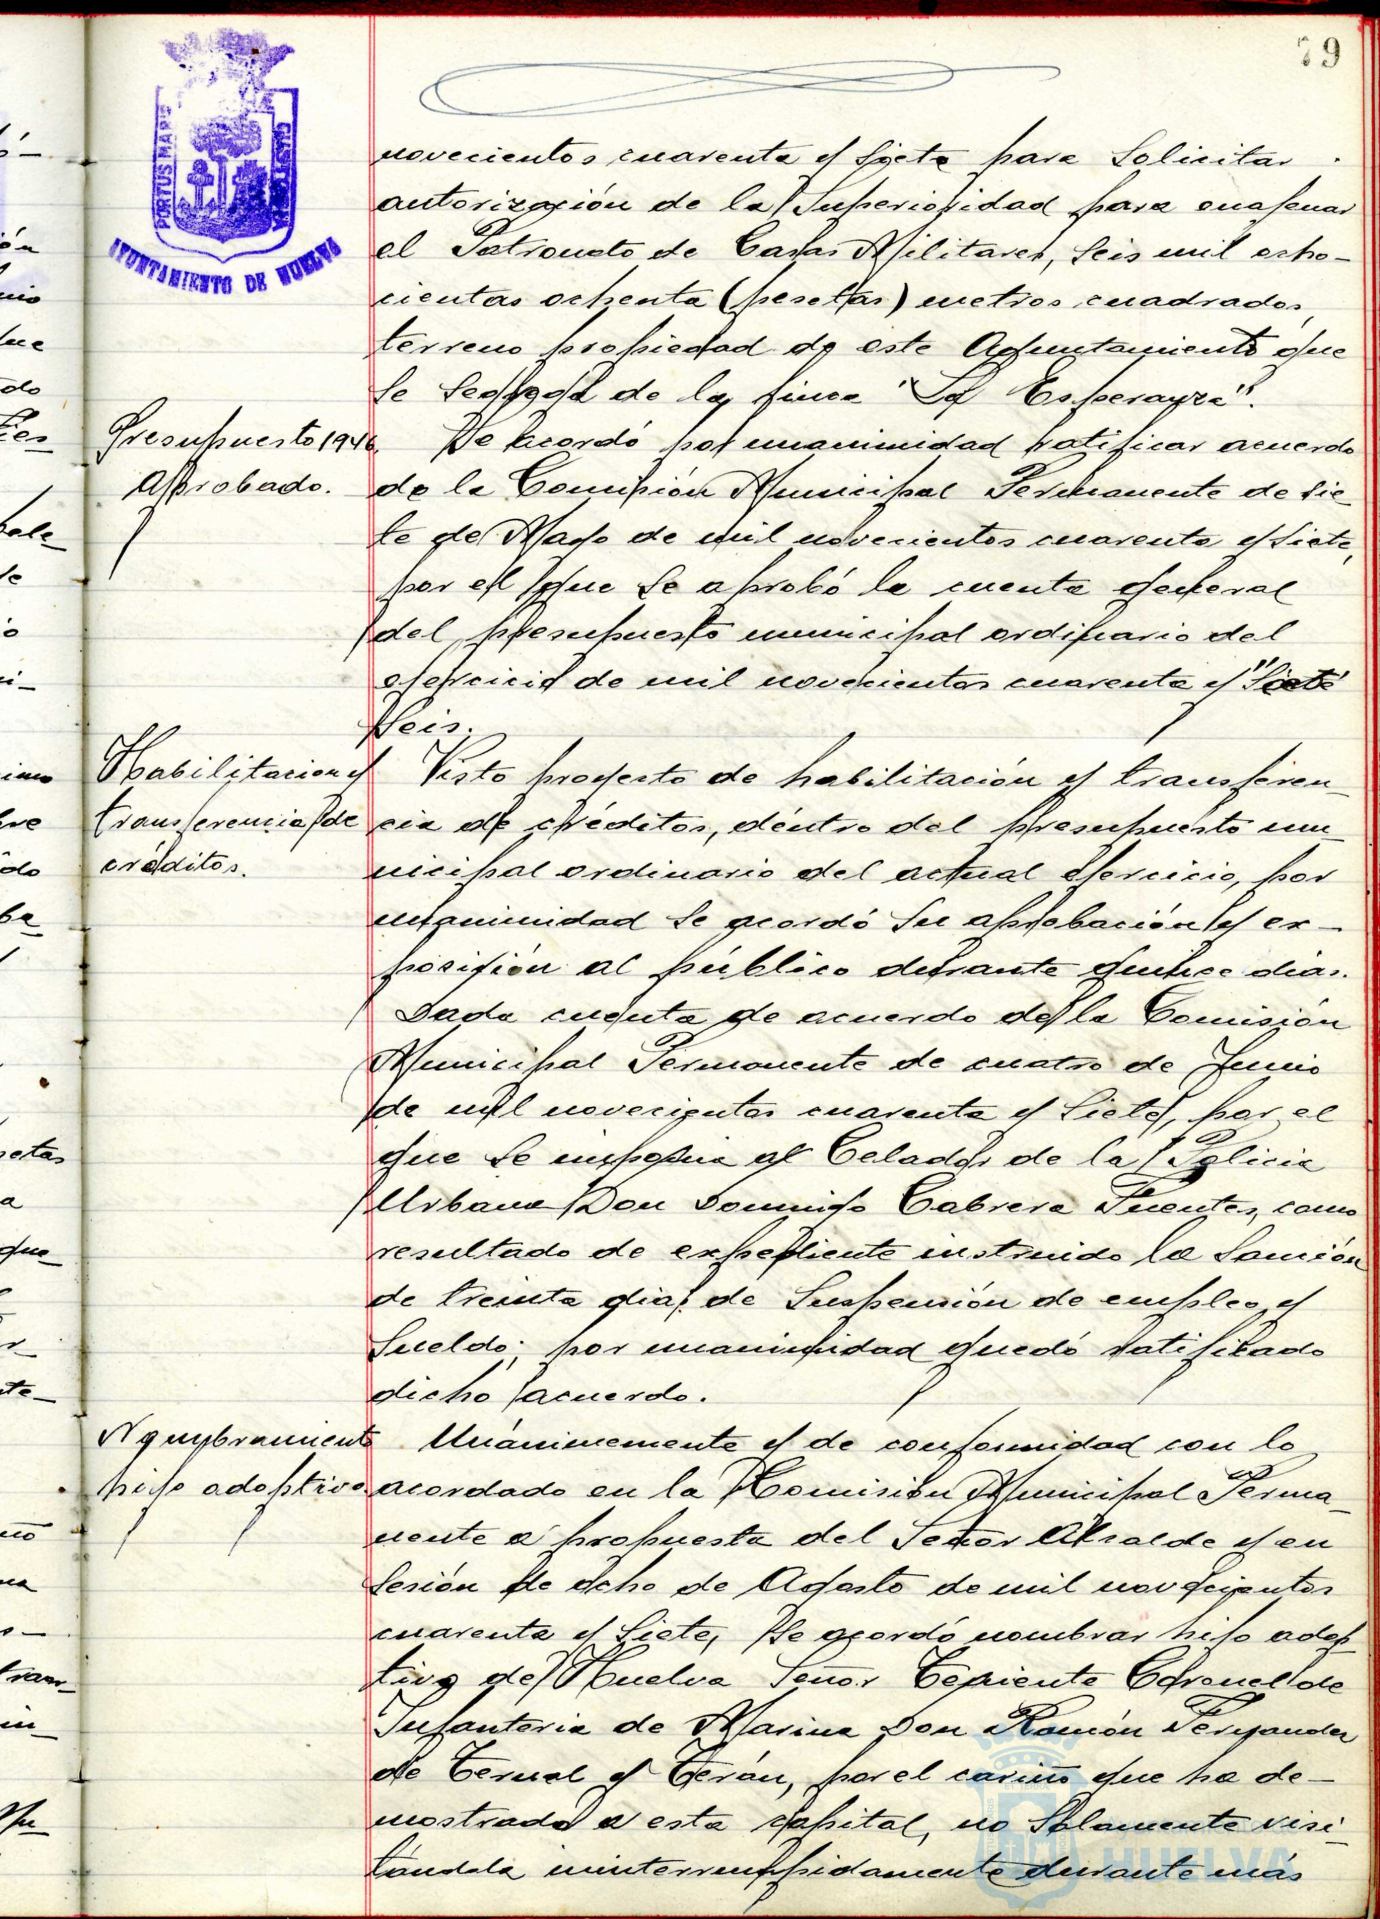 79
PORTUS MARIS
AYUNTAMIENTO DE HUELVA
novecientos cuarenta y siete para solicitar
autorización de la Superioridad para enagenar
el Patronato de Casas Militares, seis mil ocho-
cientas ochenta (pesetas) metros cuadrados,
terreno propiedad de este Ayuntamiento que
se segrega de la finca "La Esperanza".
Presupuesto 1946.
aprobado.
Se acordó por unanimidad ratificar acuerdo
de la Comisión Municipal Permanente de sie-
te de Mayo de mil novecientos cuarenta y siete,
por el que se aprobó la cuenta general
del presupuesto municipal ordinario del
ejercicio de mil novecientos cuarenta y "siete"
seis.
Habilitacion y
transferencia de
créditos.
Visto proyecto de habilitación y transferen-
cia de créditos, déntro del presupuesto mu-
nicipal ordinario del actual ejercicio, por
unanimidad se acordó su aprobación y ex-
posición al público durante quince dias.
Dada cuenta de acuerdo de la Comisión
Municipal Permanente de cuatro de Junio
de mil novecientos cuarenta y siete, por el
que se imponia al Celador de la Policia
Urbana Don Domingo Cabrera Fuentes, como
resultado de expediente instruido la sanción
de treinta dias de suspensión de empleo y
sueldo; por unanimidad quedó ratificado
dicho acuerdo.
Nombramiento
hijo adoptivo.
Unánimemente y de conformidad con lo
acordado en la Comisión Municipal Perma-
nente a propuesta del Señor Alcalde y en
sesión de ocho de Agosto de mil novecientos
cuarenta y siete, se acordó nombrar hijo adop-
tivo de Huelva Señor Teniente Coronel de
Infanteria de Marina Don Ramón Fernandez
de Teruel y Terán, por el cariño que ha de-
mostrado a esta capital, no solamente visi-
tandola ininterrumpidamente durante más
HUELVA